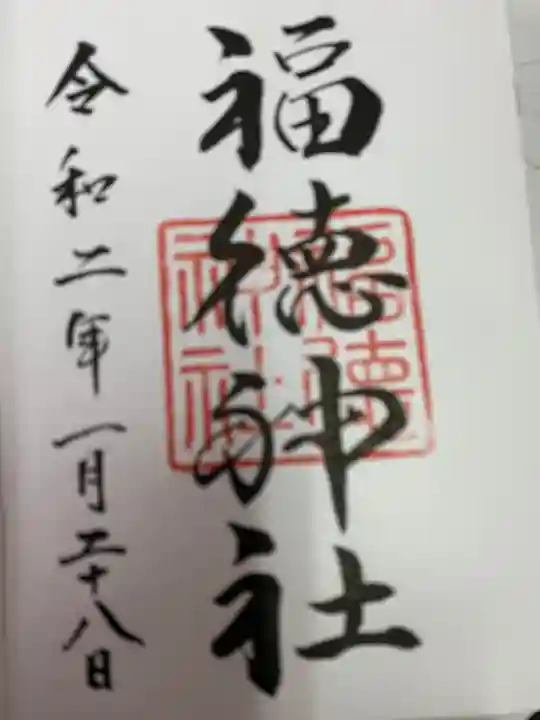 福徳神社
令和二年一月二十八日
福徳
神社